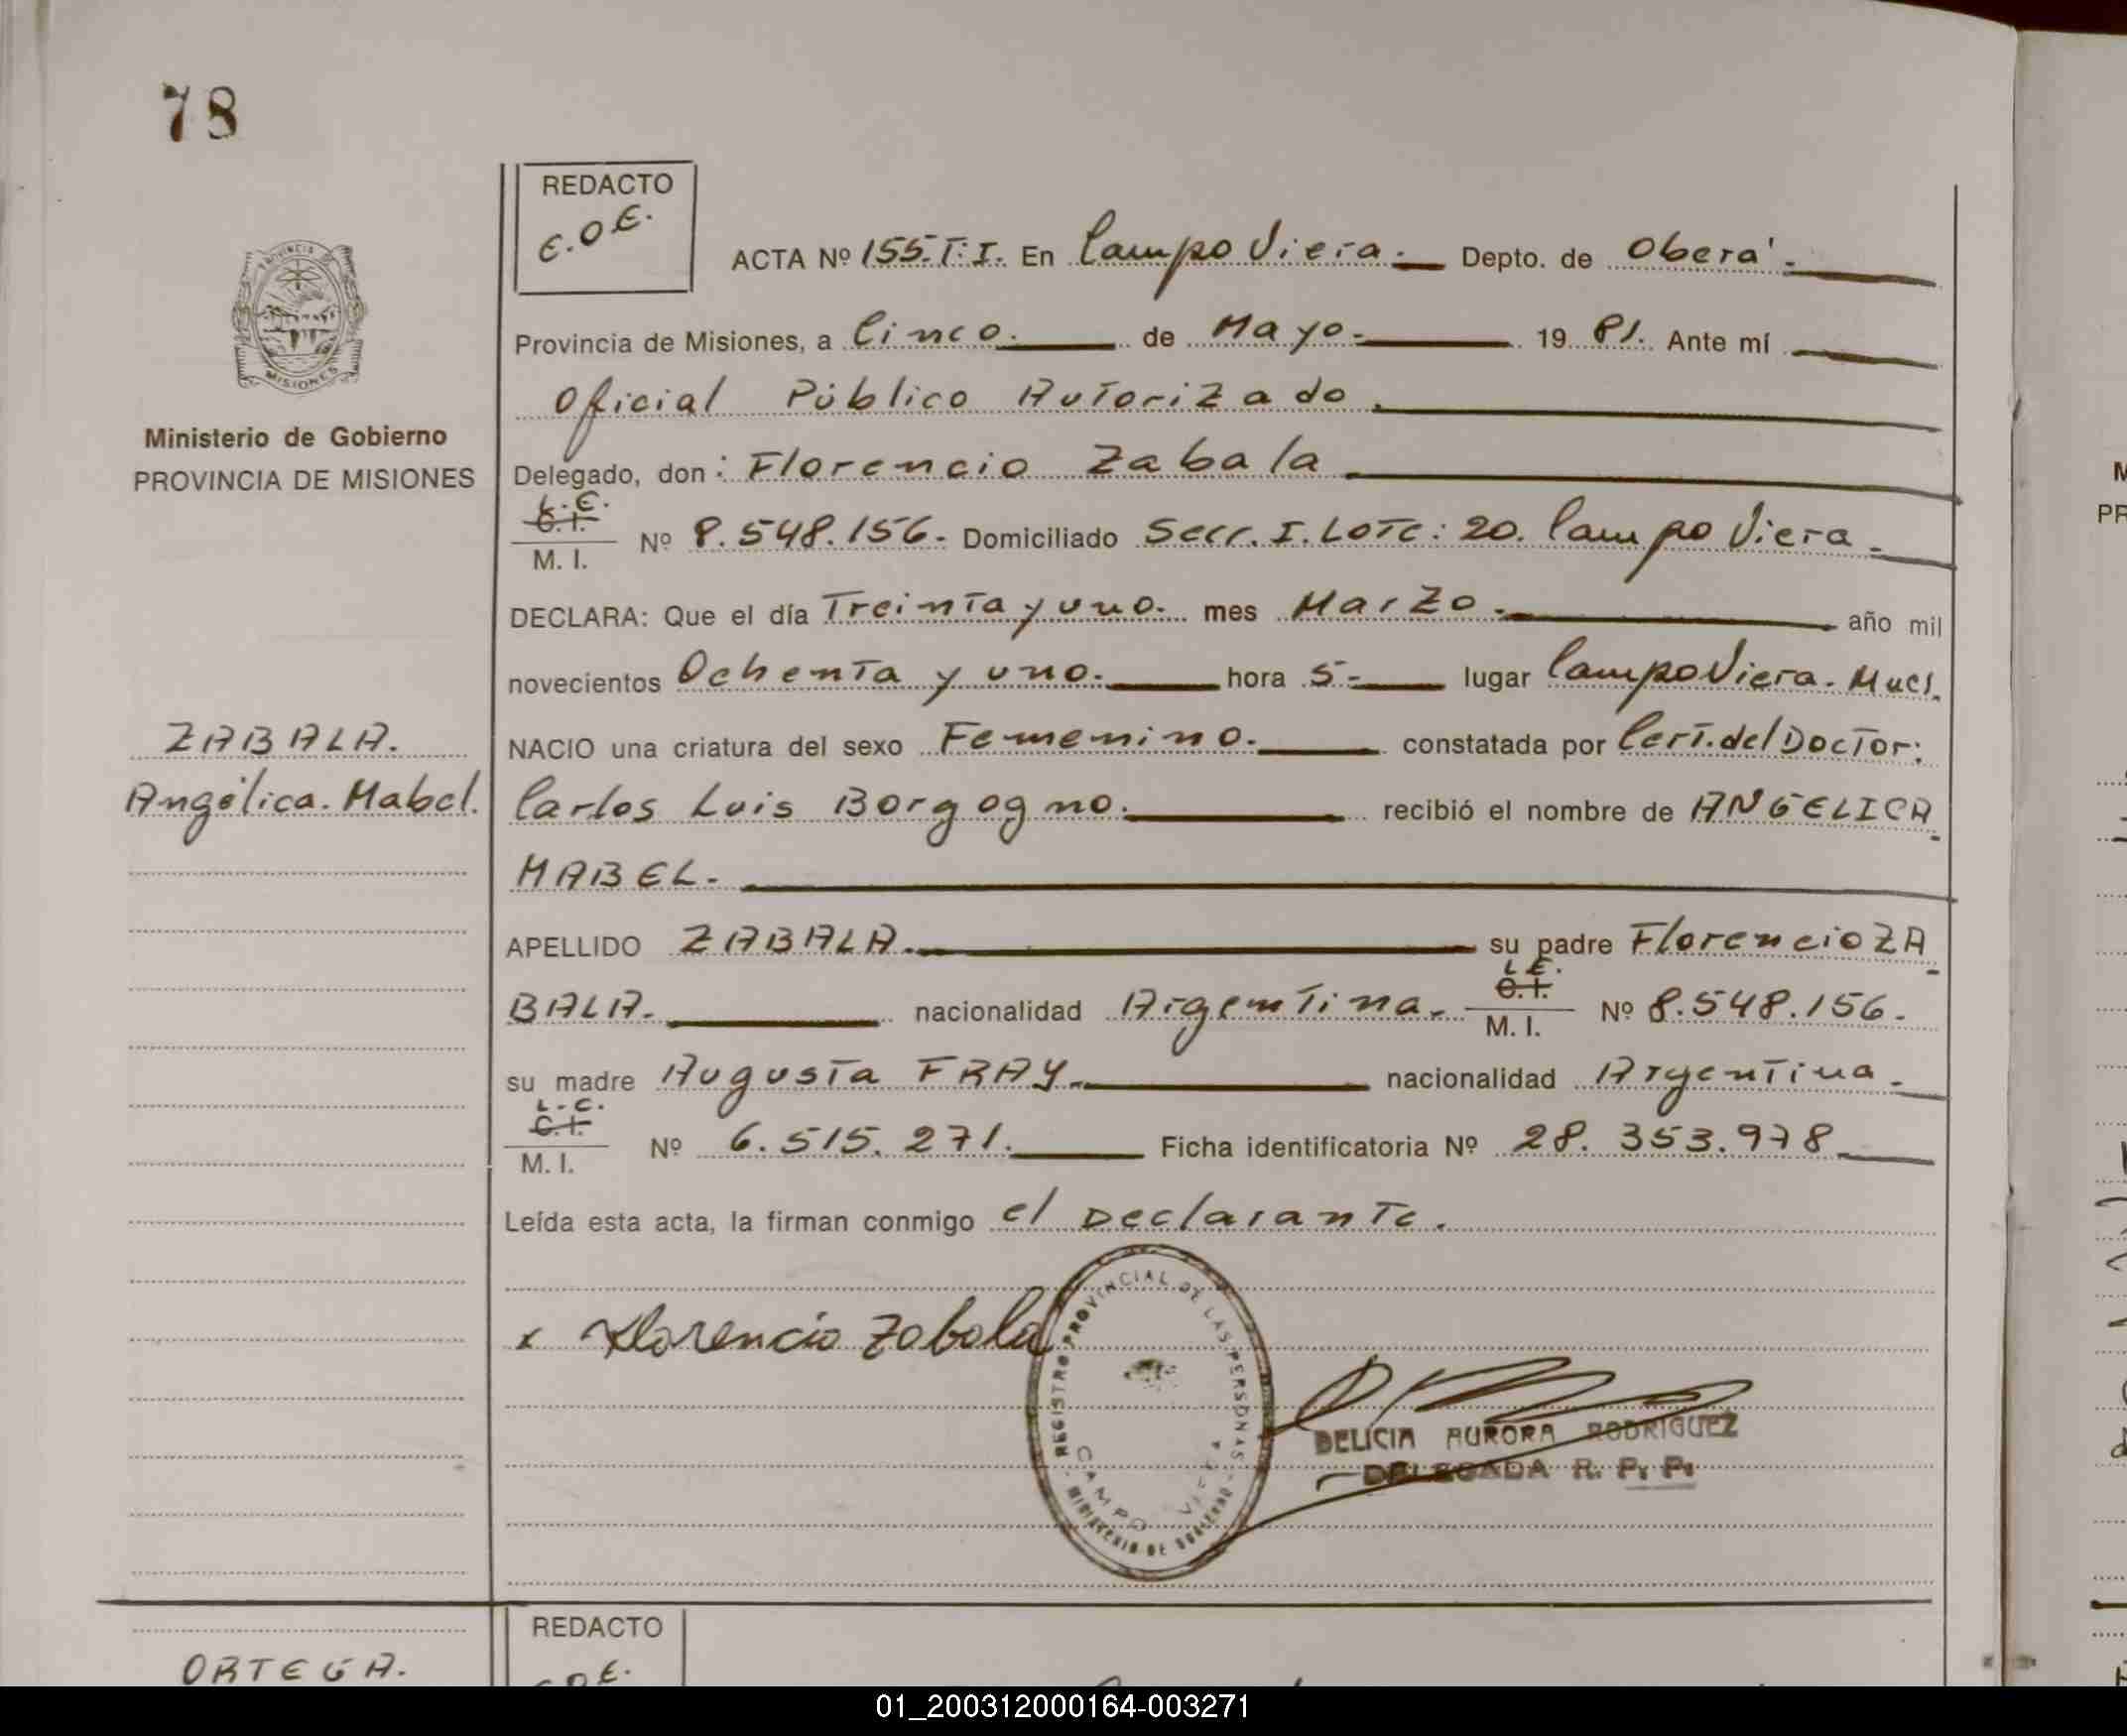 78
REDACTO
E.O.E.
ACTA Nº 155.T:I. En Campo Viera.- Depto. de Oberá.-
Provincia de Misiones, a Cinco. de Mayo.- 19 81. Ante mí
Oficial Público Autorizado.
Delegado, don: Florencio Zabala
L.E.
C.I.
M. I.
Nº 8.548.156.- Domiciliado Secc. I. Lote: 20. Campo Viera.-
DECLARA: Que el día Treinta y uno. mes Marzo.- año mil
novecientos Ochenta y uno. hora 5.- lugar Campo Viera. Mnes.
NACIO una criatura del sexo Femenino.- constatada por Cert. del Doctor:
Carlos Luis Borgogno. recibió el nombre de ANGELICA
MABEL.-
APELLIDO ZABALA. su padre Florencio ZA
L E.
C.I.
M. I.
BALA. nacionalidad Argentina. Nº 8.548.156.
su madre Augusta FRAY. nacionalidad Argentina.-
L.C.
C.I.
M. I.
Nº 6.515.271. Ficha identificatoria Nº 28.353.978
Leída esta acta, la firman conmigo el Declarante.
x Florencio Zabala
REGISTRO PROVINCIAL DE LAS PERSONAS
CAMPO VIERA
MINISTERIO DE GOBIERNO
DELICIA AURORA RODRIGUEZ
DELEGADA R. P. P.
PROVINCIA
MISIONES
Ministerio de Gobierno
PROVINCIA DE MISIONES
ZABALA.
Angélica. Mabel.
ORTEGA.
REDACTO
01_200312000164-003271